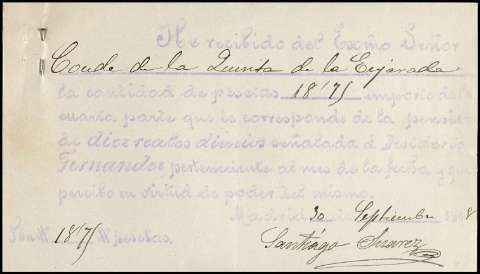 He recibido del Exmo Señor
Conde de la Quinta de la Enjarada
la cantidad de pesetas 18'75 importe de la
cuarta parte que le corresponde de la pensión
de diez reales diarios señalada á Desiderio
Fernandez perteneciente al mes de la fecha y que
percibo en virtud de poder del mismo.
Madrid 30 Septiembre 18 8
Son 18'75 pesetas.
Santiágo Suarez